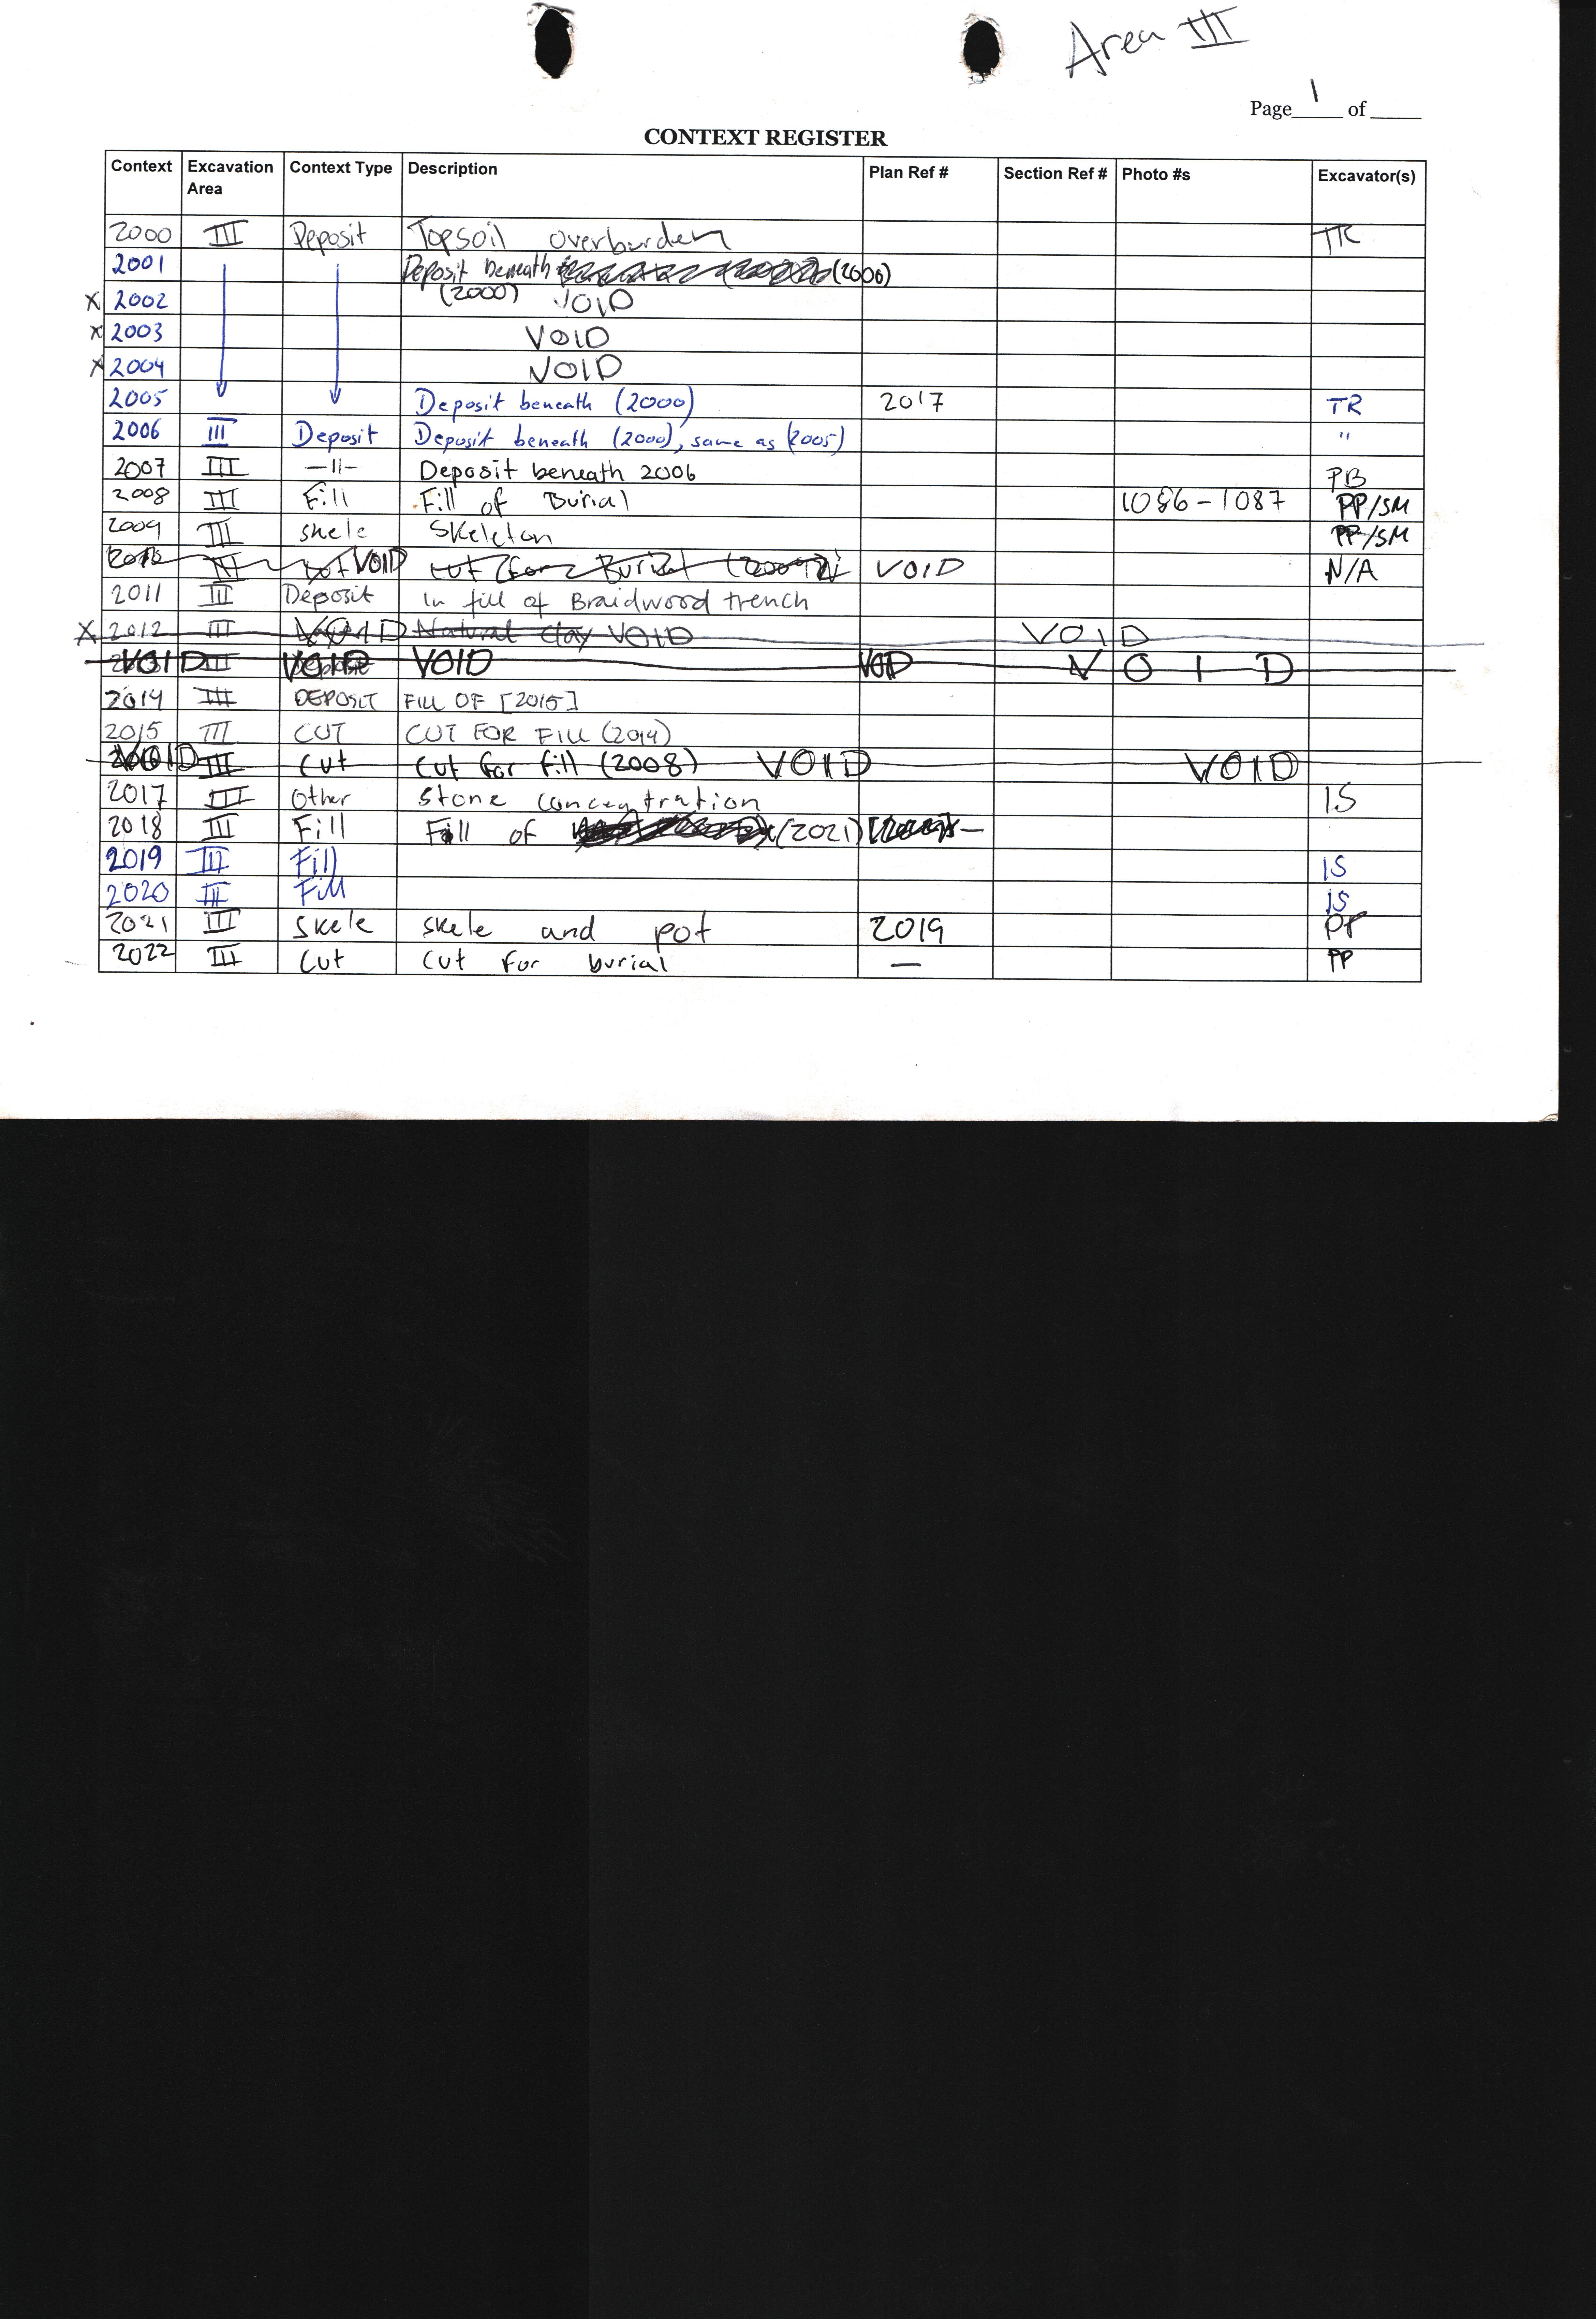 Area III
Page 1 of
CONTEXT REGISTER
Context Excavation Area Context Type Description Plan Ref # Section Ref # Photo #s Excavator(s)
2000 III Deposit Topsoil overburden
2001 Deposit beneath (2000)
(2000)
X 2002 VOID
X 2003 VOID
X 2004 VOID
2005 Deposit beneath (2000) 2017 TR
2006 III Deposit Deposit beneath (2000), same as (2005) "
2007 III -11- Deposit beneath 2006 PB
2008 III Fill Fill of Burial 1086-1087 PP/SM
2009 III skele Skeleton PP/SM
VOID cut Burial VOID N/A
2011 III Deposit In fill of Braidwood trench
X 2012 III VOID Natural Clay VOID VOID
VOID III VOID VOID VOID VOID
2014 III DEPOSIT FILL OF [2015]
2015 III CUT CUT FOR FILL (2014)
VOID III Cut Cut for fill (2008) VOID VOID
2017 III Other Stone concentration IS
2018 III Fill Fill of (2021)
2019 III Fill IS
2020 III Fill IS
2021 III Skele skele and pot 2019 PP
2022 III Cut Cut for burial — PP